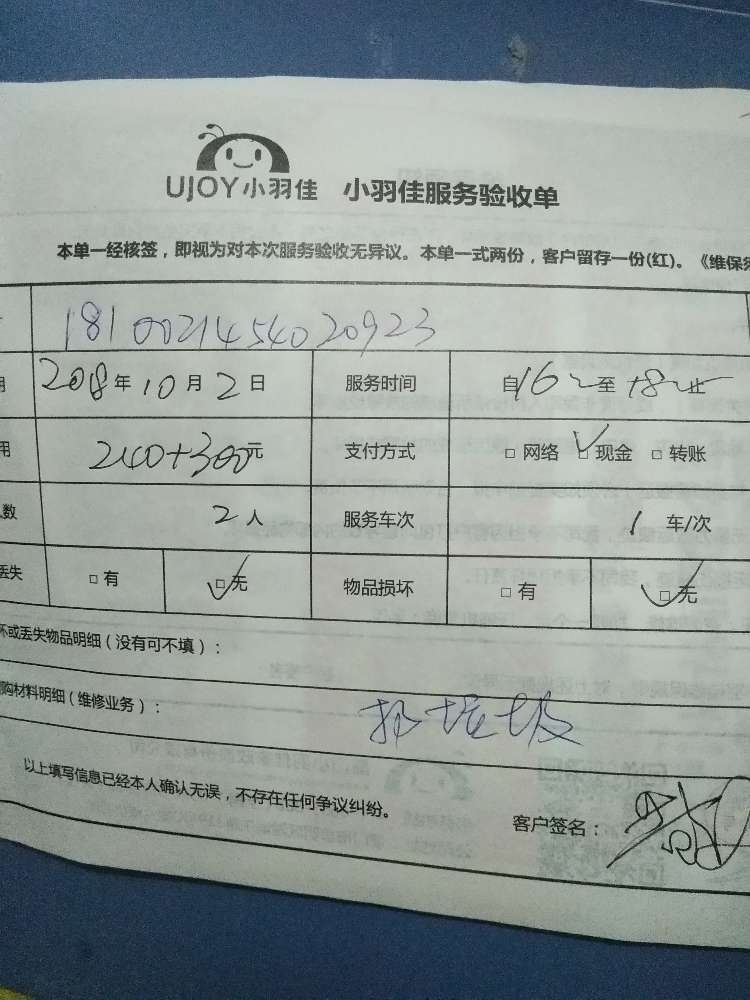 UJOY小羽佳 小羽佳服务验收单
本单一经核签，即视为对本次服务验收无异议。本单一式两份，客户留存一份(红)。《维保须
1810021454020923
2018年10月2日 服务时间 自16~至18~止
用 240+300元 支付方式 □网络 □现金 □转账
数 2人 服务车次 1车/次
丢失 □有 □无 物品损坏 □有 □无
坏或丢失物品明细（没有可不填）：
购材料明细（维修业务）：
以上填写信息已经本人确认无误，不存在任何争议纠纷。
客户签名：